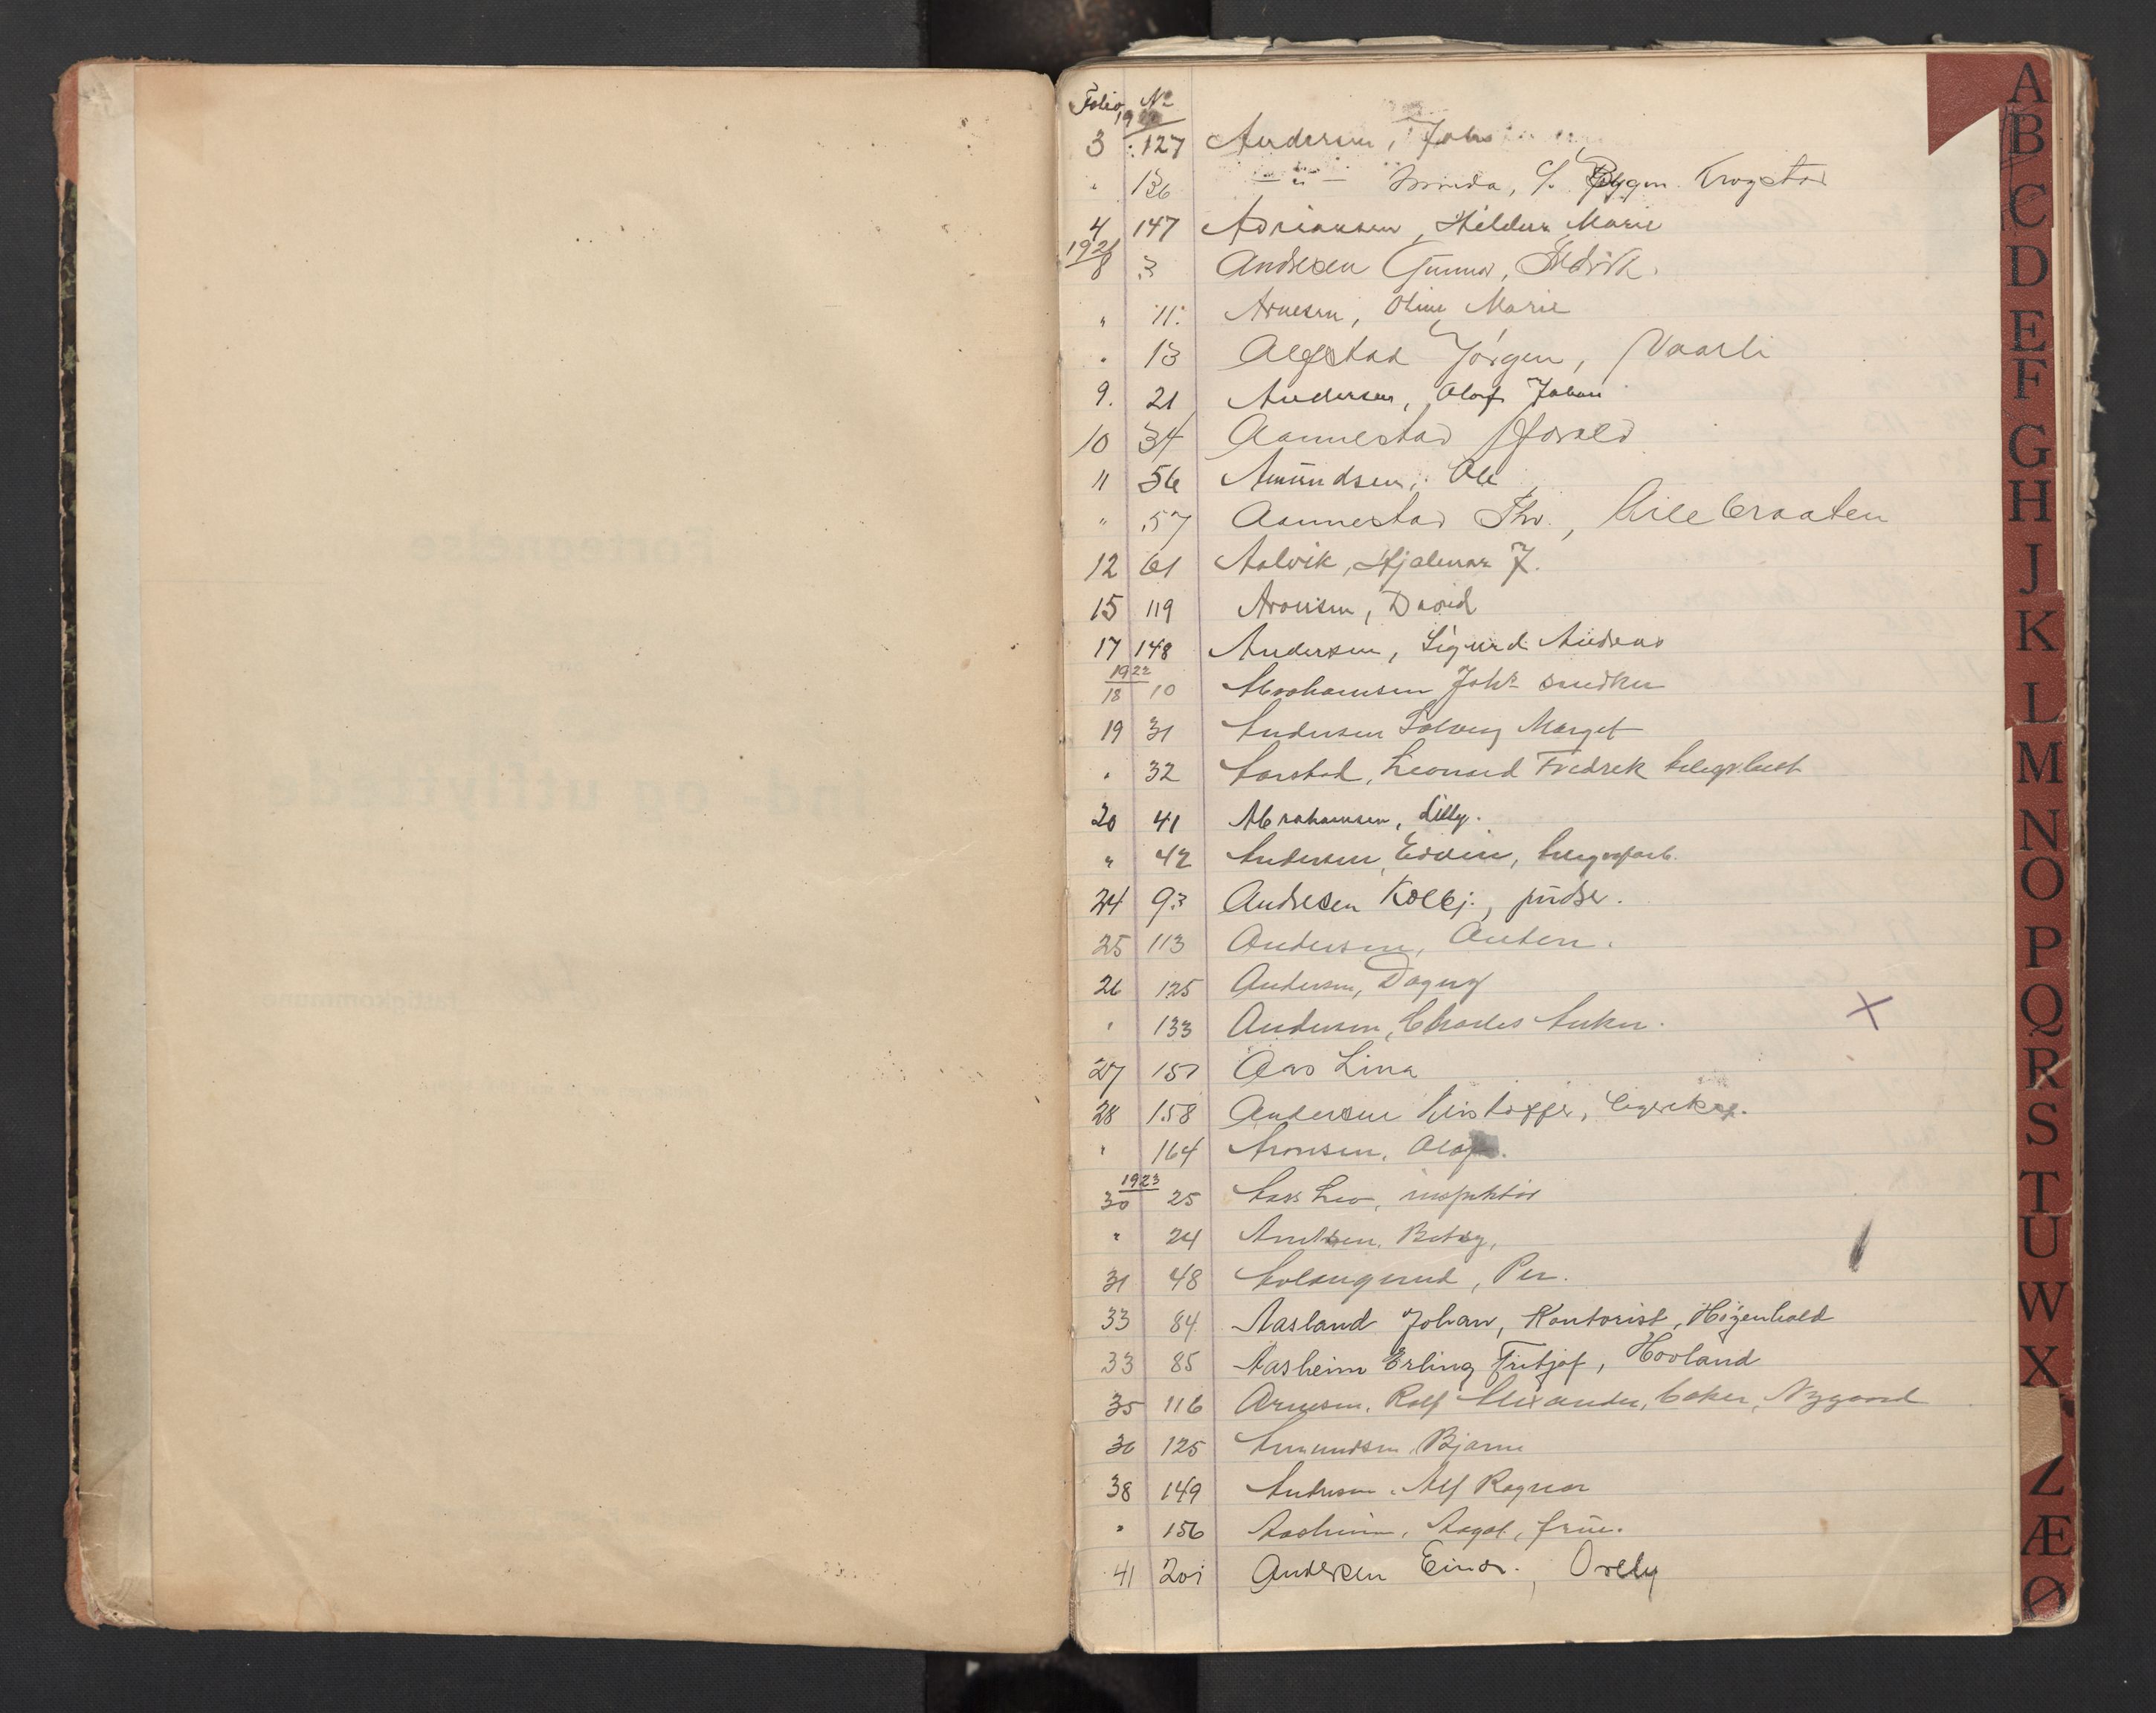 Folio No
19
3 127 Andersen, Johs
" 136 — " — S. Krogstad
4 147 Adriansen, Hildur Marie
1921
8 3 Andresen Gunnar, Fredrik.
" 11. Arnesen, Oline Marie
" 13 Algstad Jørgen, Vaarli
9. 21 Andersen, Olaf Johan
10 34 Aannestad Harald
11 56 Amundsen, Ole
" 57 Aannestad Thv., Lillebraaten
12 61 Aalvik, Hjalmar J.
15 119 Aronsen, David
17 148 Andersen, Sigurd Andreas
1922
18 10 Abrahamsen Johs snedker
19 31 Andersen Solveig Marget
" 32 Aarstad, Leonard Fredrek
20 41 Abrahamsen, Lilly.
" 42 Andersen, Edvin,
24 93 Andresen Kolbj., pudser.
25 113 Andersen, Anton.
26 125 Andersen, Dagny
" 133 Andersen, Charles Anker.
27 151 Aas Lina
28 158 Andersen Kristoffer,
" 164 Aronsen, Olaf.
1923
30 25 Aass Leo, inspektør
" 24 Arntsen, Betsy,
31 48 Aolangrud, Per.
33 84 Aasland Johan, Kontorist, Høgenhold
33 85 Aasheim Erling Fritjof, Hovland
35 116 Arnesen, Rolf Alexander, baker, Nygaard
36 125 Amundsen, Bjarne
38 149 Andresen, Alf Ragnar
" 156 Aasheim, Aagot, frue.
41 201 Andersen Einar., Orely
A
B
C
D
E
F
G
H
J
K
L
M
N
O
P
Q
R
S
T
U
W
X
Z
Æ
Ø